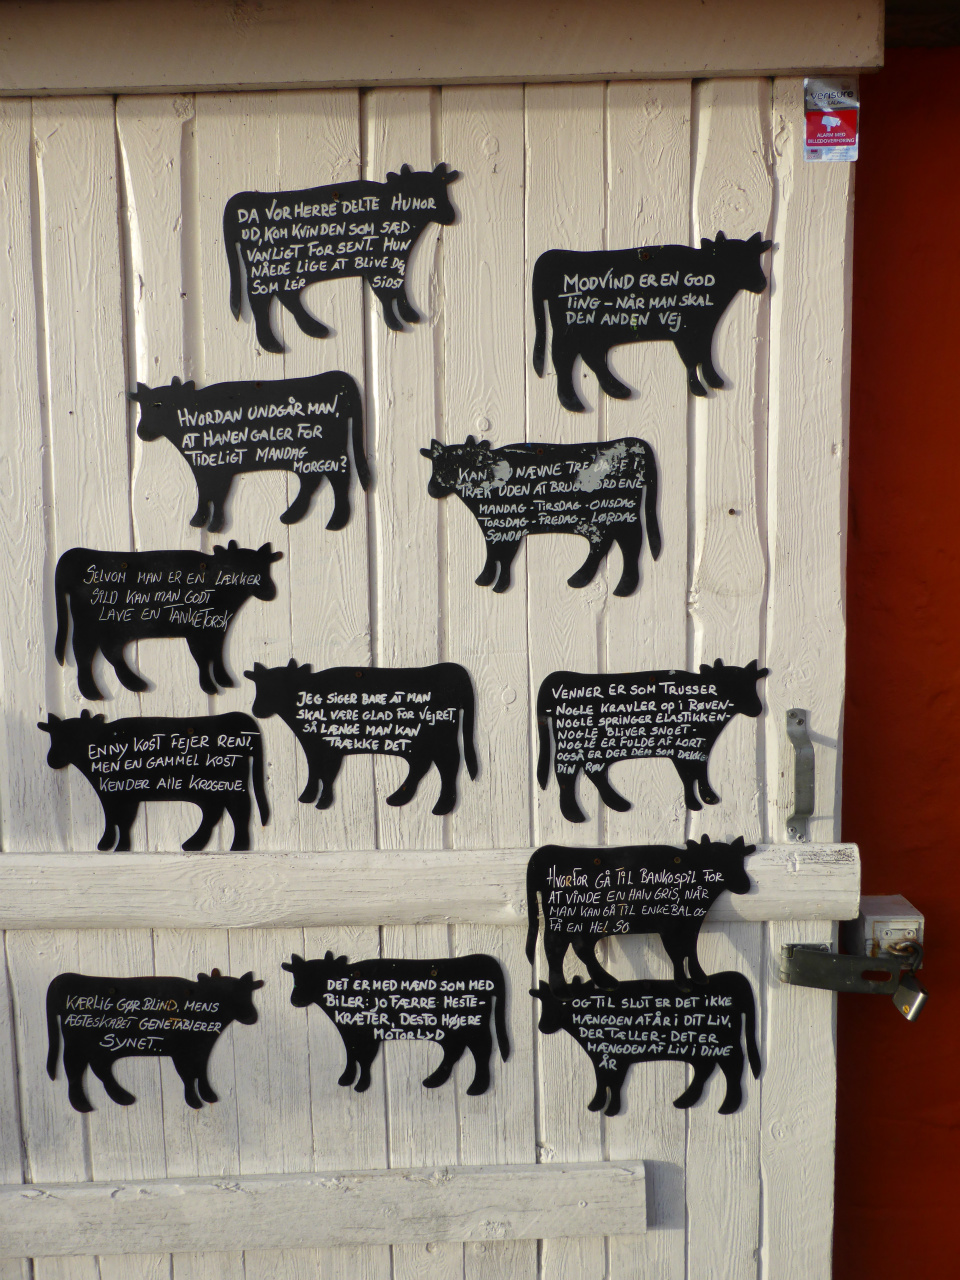 verisure
ALARM MED
BILLEDOVERFØRING
DA VORHERRE DELTE HUMOR
UD, KOM KVINDEN SOM SÆD-
VANLIGT FOR SENT. HUN
NÅEDE LIGE AT BLIVE DE,
SOM LER SIDST
MODVIND ER EN GOD
TING - NÅR MAN SKAL
DEN ANDEN VEJ.
HVORDAN UNDGÅR MAN,
AT HANEN GALER FOR
TIDELIGT MANDAG
MORGEN?
KAN NÆVNE TRE I
TRÆK UDEN AT ORDENE
MANDAG - TIRSDAG - ONSDAG
TORSDAG - FREDAG - LØRDAG
SØNDAG
SELVOM MAN ER EN LÆKKER
SILD KAN MAN GODT
LAVE EN TANKETORSK
JEG SIGER BARE AT MAN
SKAL VÆRE GLAD FOR VEJRET,
SÅ LÆNGE MAN KAN
TRÆKKE DET.
VENNER ER SOM TRUSSER
- NOGLE KRAVLER OP I RØVEN-
- NOGLE SPRINGER ELASTIKKEN-
NOGLE BLIVER SNOET-
- NOGLE ER FULDE AF LORT
OGSÅ ER DER DEM SOM DÆKKER
DIN RØV
ENNY KOST FEJER RENT,
MEN EN GAMMEL KOST
KENDER ALLE KROGENE.
HVORFOR GÅ TIL BANKOSPIL FOR
AT VINDE EN HALV GRIS, NÅR
MAN KAN GÅ TIL ENKEBAL OG
FÅ EN HEL SO
KÆRLIG GØR BLIND, MENS
ÆGTESKABET GENETABLERER
SYNET..
DET ER MED MÆND SOM MED
BILER: JO FÆRRE HESTE-
KRÆFTER, DESTO HØJERE
MOTORLYD
- OG TIL SLUT ER DET IKKE
MÆNGDEN AF ÅR I DIT LIV,
DER TÆLLER - DET ER
MÆNGDEN AF LIV I DINE
ÅR